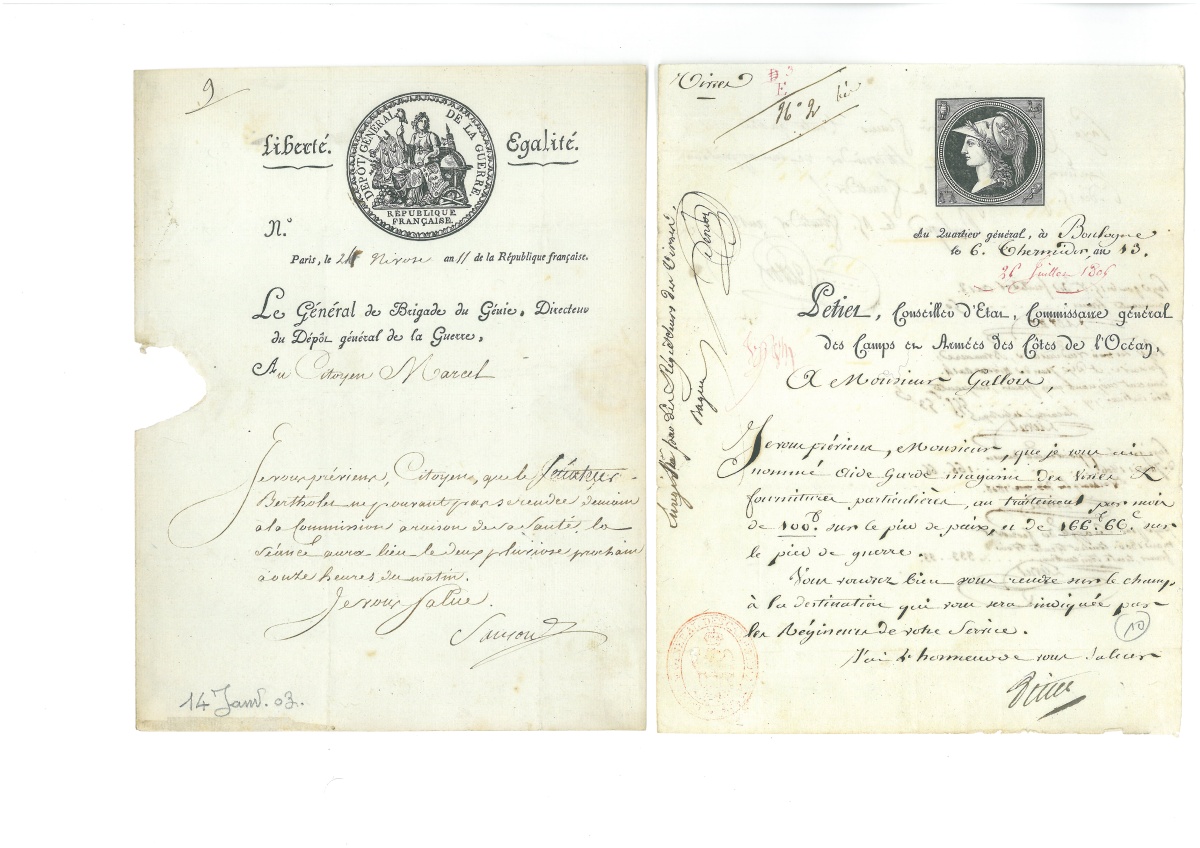 9
Liberté.
Egalité.
DÉPÔT GÉNÉRAL DE LA GUERRE.
RÉPUBLIQUE
FRANÇAISE.
N.º
Paris, le 24 Nivose an 11 de la République française.
Le Général de Brigade du Génie, Directeur
du Dépôt général de la Guerre,
Au Citoyen Marcel
Je vous préviens, Citoyen, que le Sénateur
Berthollet ne pouvant pas se rendre demain
à la Commission à raison de sa Santé, la
Séance aura lieu le deux pluviose prochain
à onze heures du matin.
Je vous Salue.
Sanson
14 Janv. 03.
Vivres
E
N° 2 bis
Au Quartier général, à Boulogne
le 6. Thermidor, an 13.
26 juillet 1805
Petiet, Conseiller d'Etat, Commissaire général
des Camps et Armées des Côtes de l'Océan,
A Monsieur Gallois,
Je vous préviens, Monsieur, que je vous ai
nommé Aide Garde magasin des vivres &
fournitures particulières, au traitement par mois
de 100f sur le pied de paix, et de 166f 66c sur
le pied de guerre.
Vous voudrez bien vous rendre sur le champ
à la destination qui vous sera indiquée par
les Régisseurs de votre Service.
J'ai l'honneur de vous saluer
Petiet
10
Enregistré par les Régisseurs des Vivres.